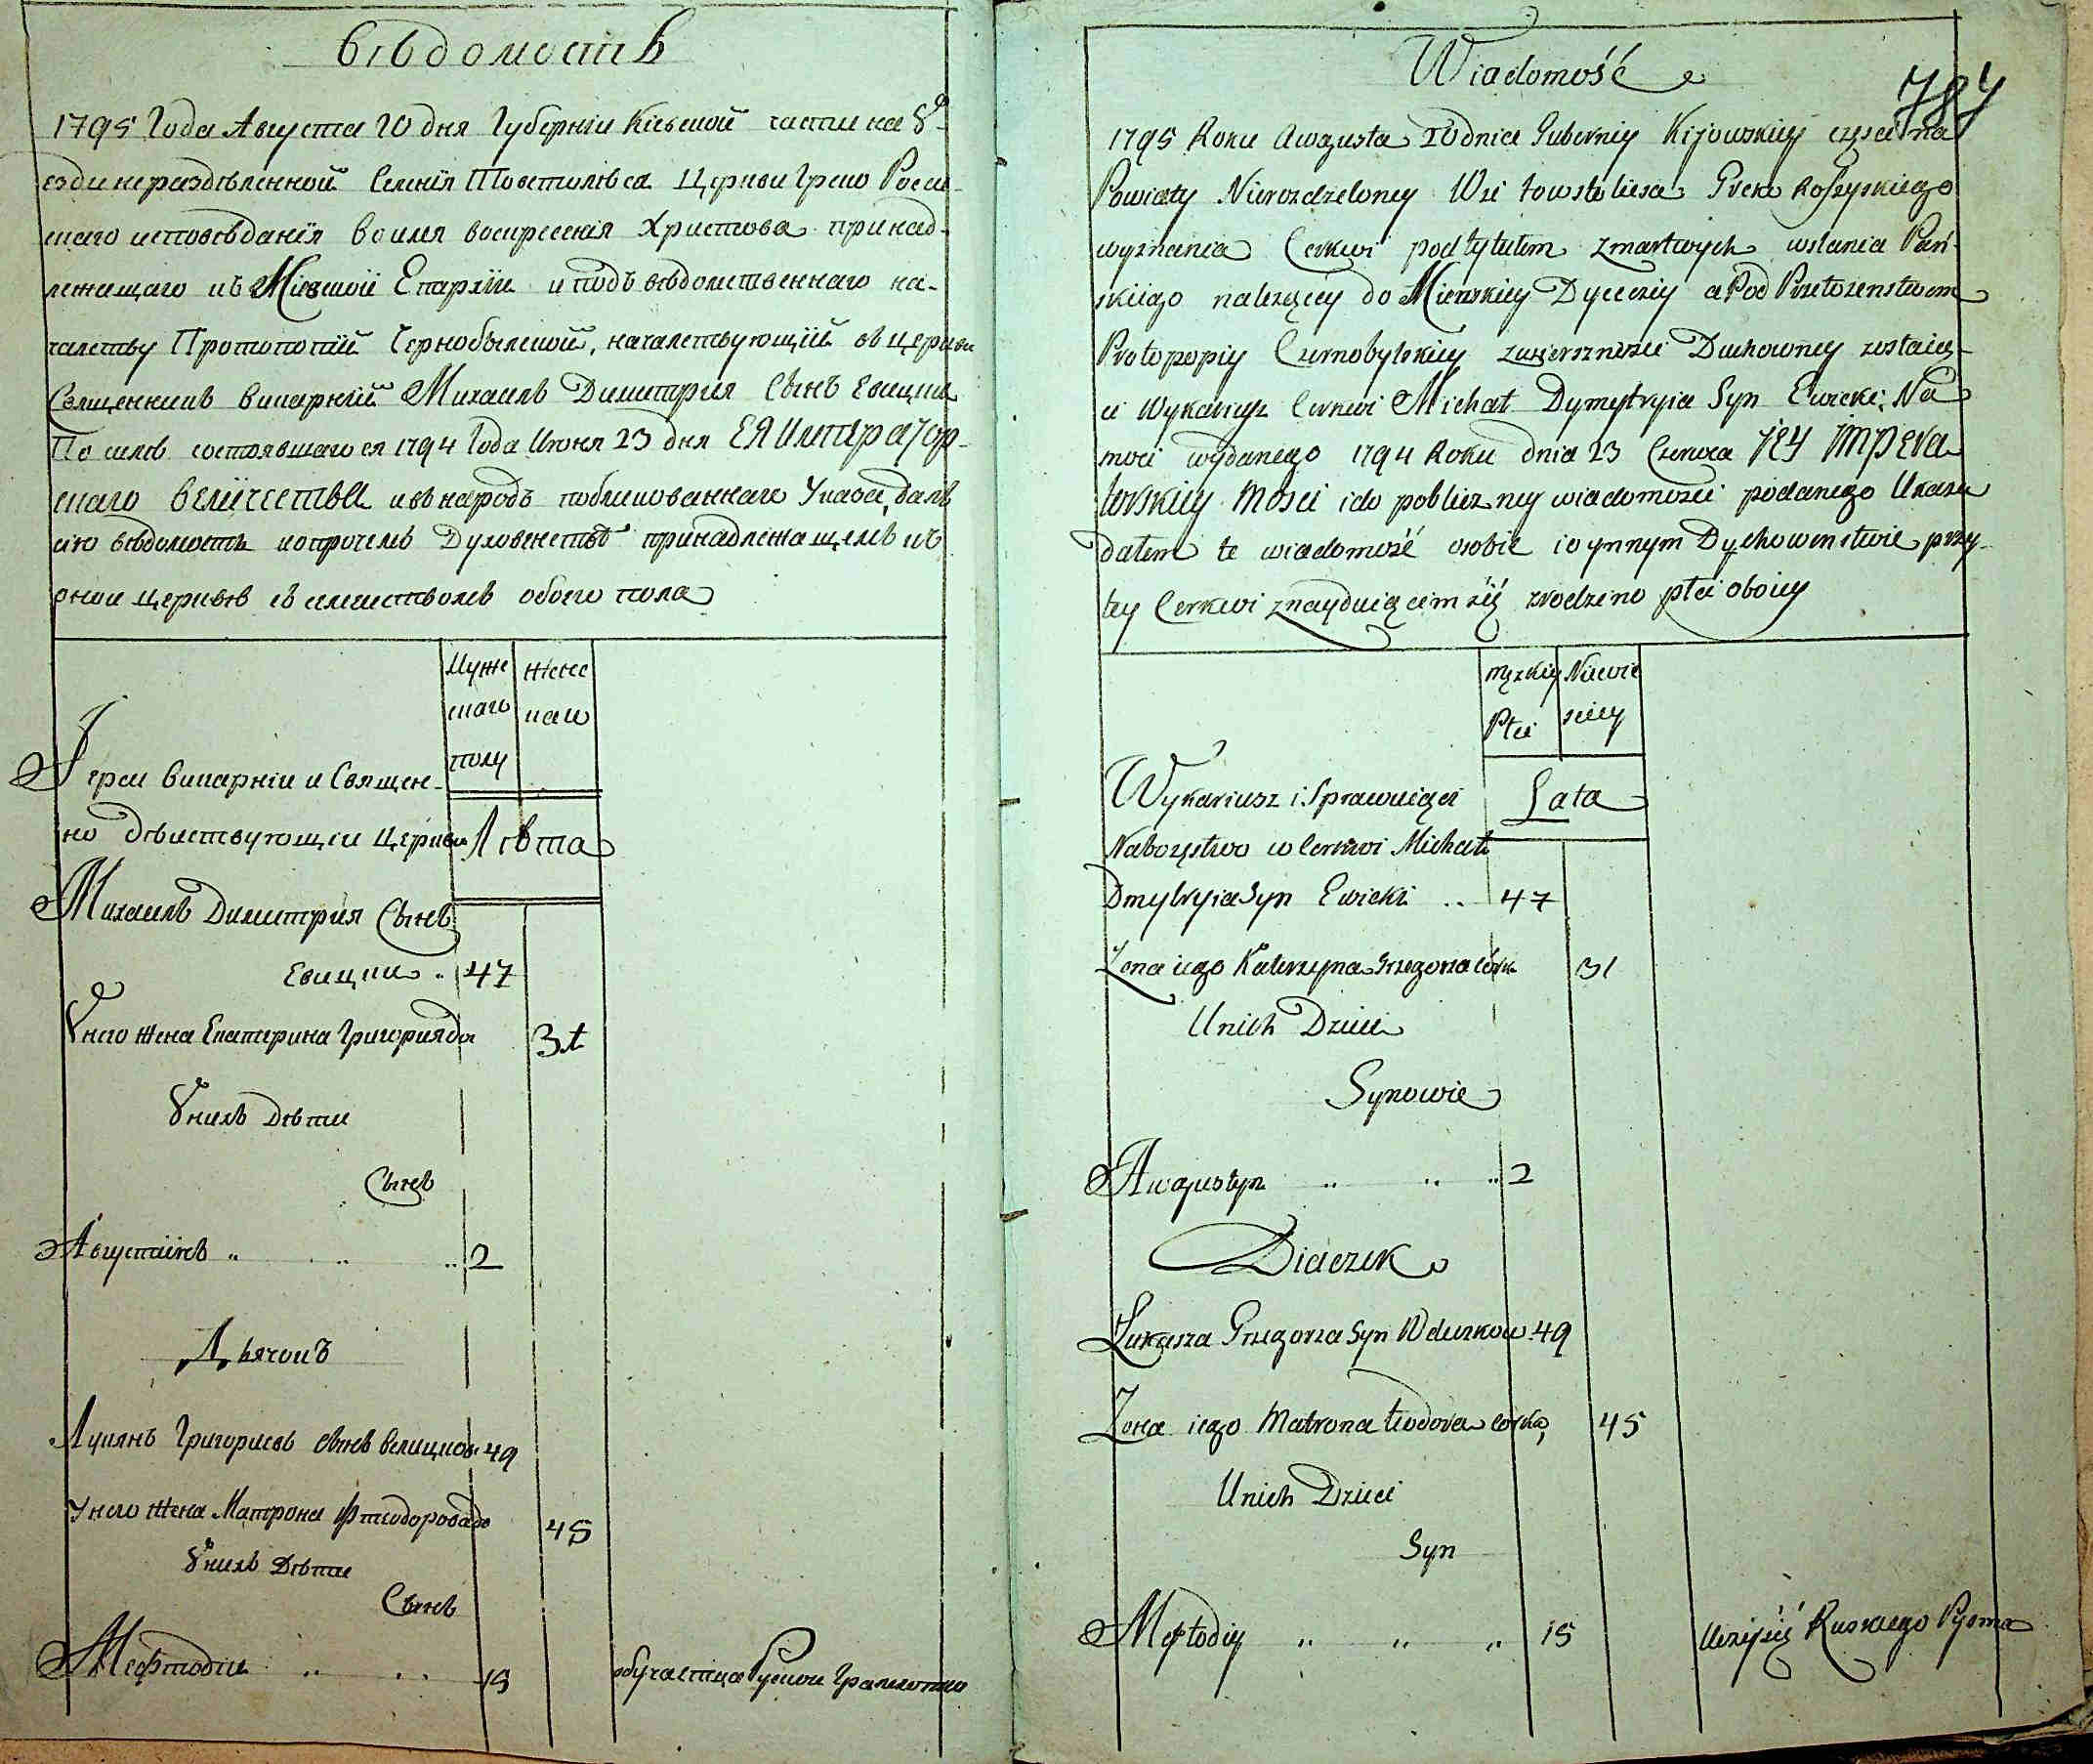 Вѣдомость
1795 Года Августа 20 дня Губернiи Кiевской части на У-
езди нераздѣленной Селенiя Товстолѣса Церкви Греко Росси-
скаго исповѣданiя во имя воскресенiя Христова принад-
лежащаго къ Мiнской Епархiи и подъ вѣдомственнаго на-
чалству Протопопiй Чернобылской, началствующiй въ церкви
Священникъ викарнiй Михаилъ Димитрия Сынъ Евицки
По силѣ состоявшагося 1794 Года Июня 23 дня ЕЯ Император-
скаго Величества и въ народъ публикованнаго Указа, далъ
сию вѣдомость и о прочемъ Духовенствѣ принадлежащемъ къ
оной церквѣ съ семействомъ обоего пола
Муже
скаго
полу
Женс
каго
Лѣта
Iереи викарнiи и Священ-
но дѣиствующiи церкви
Михаилъ Димитрия Сынъ
Евицки .. 47
У него жена Екатерина Григория до 31
У нихъ Дѣти
Сынъ
Августiнъ .. .. .. 2
Дьячокъ
Лукянъ Григориевъ сынъ Велицков 49
У него жена Матрона Фтеодорова до 45
У нихъ Дѣти
Сынъ
Мефтодiи .. .. 15 обучаетца Руской Грамоти
Wiadomość
784
1795 Roku Awgusta 20 dnia Guberniy Kijowskiey części na
Powiaty Nierozdzeloney Wsi towstoliesa Greko Rossyskiego
wyznania Cerkwi pod tytułem zmartwych wstania Pań-
skiego należącey do Mienskiey Dyeceziy a Pod Przełozenstwem
Protopopiy Czernobylskiey zwierszności Duchowney zostaią-
ci Wykariusz Cerkwi Michał Dymytryia Syn Ewicki: Na
moci wydanego 1794 Roku dnia 23 Czerwca JEY IMPERA
torskiey Mosci i do publiczney wiadomości podanego Ukazu
dałem te wiadomość osobie i o ynnym Duchowenstwie przy-
tey Cerkwi znayduiącim się zrodzino płci oboiey
męzkiey
Płci
Niewie
sciey
Lata
Wykariusz i Sprawuiąci
Nabozęstwo w Cerkwi Michał
Dmytryia Syn Ewicki .. 47
Zona iego Katerzyna Grzegorza córka 31
U nich Dzieci
Synowie
Awgustyn .. .. .. 2
Diaczek
Łukasza Grzegorza Syn Weluzkow 49
Zona iego Matrona teodora corka, 45
U nich Dzieci
Syn
Meftodiy .. .. .. 15 Uczysię Ruskiego Pysma